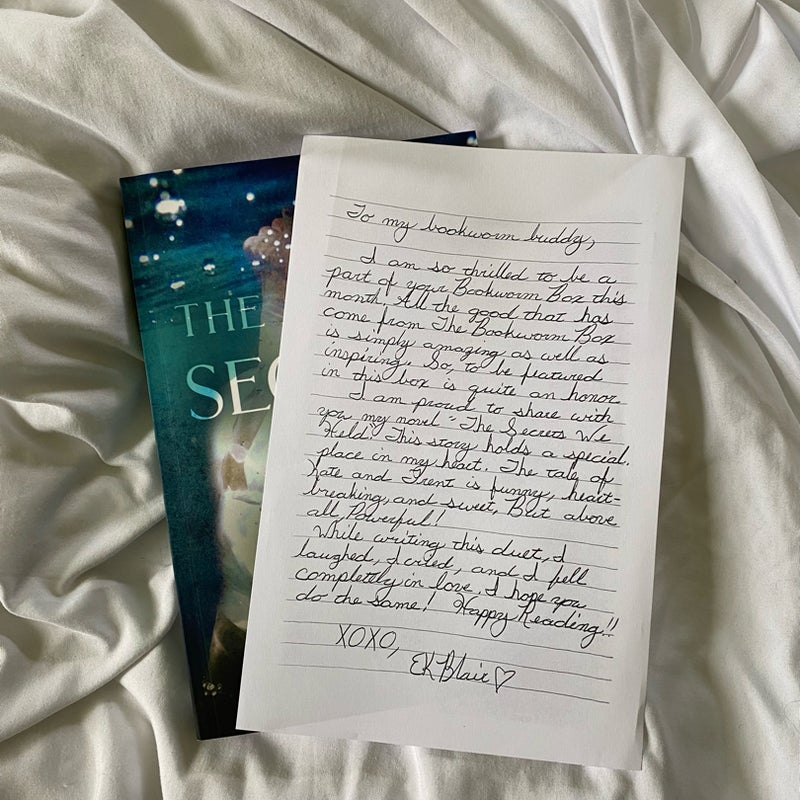 THE
SEC
To my bookworm buddy,
I am so thrilled to be a
part of your Bookworm Box this
month. All the good that has
come from The Bookworm Box
is simply amazing as well as
inspiring. So, to be featured
in this box is quite an honor.
I am proud to share with
you my novel "The Secrets We
Held." This story holds a special
place in my heart. The tale of
Kate and Trent is funny, heart-
breaking, and sweet, But above
all, Powerful!
While writing this duet, I
laughed, I cried, and I fell
completely in love. I hope you
do the same! Happy Reading!!
XOXO,
EK Blair♡